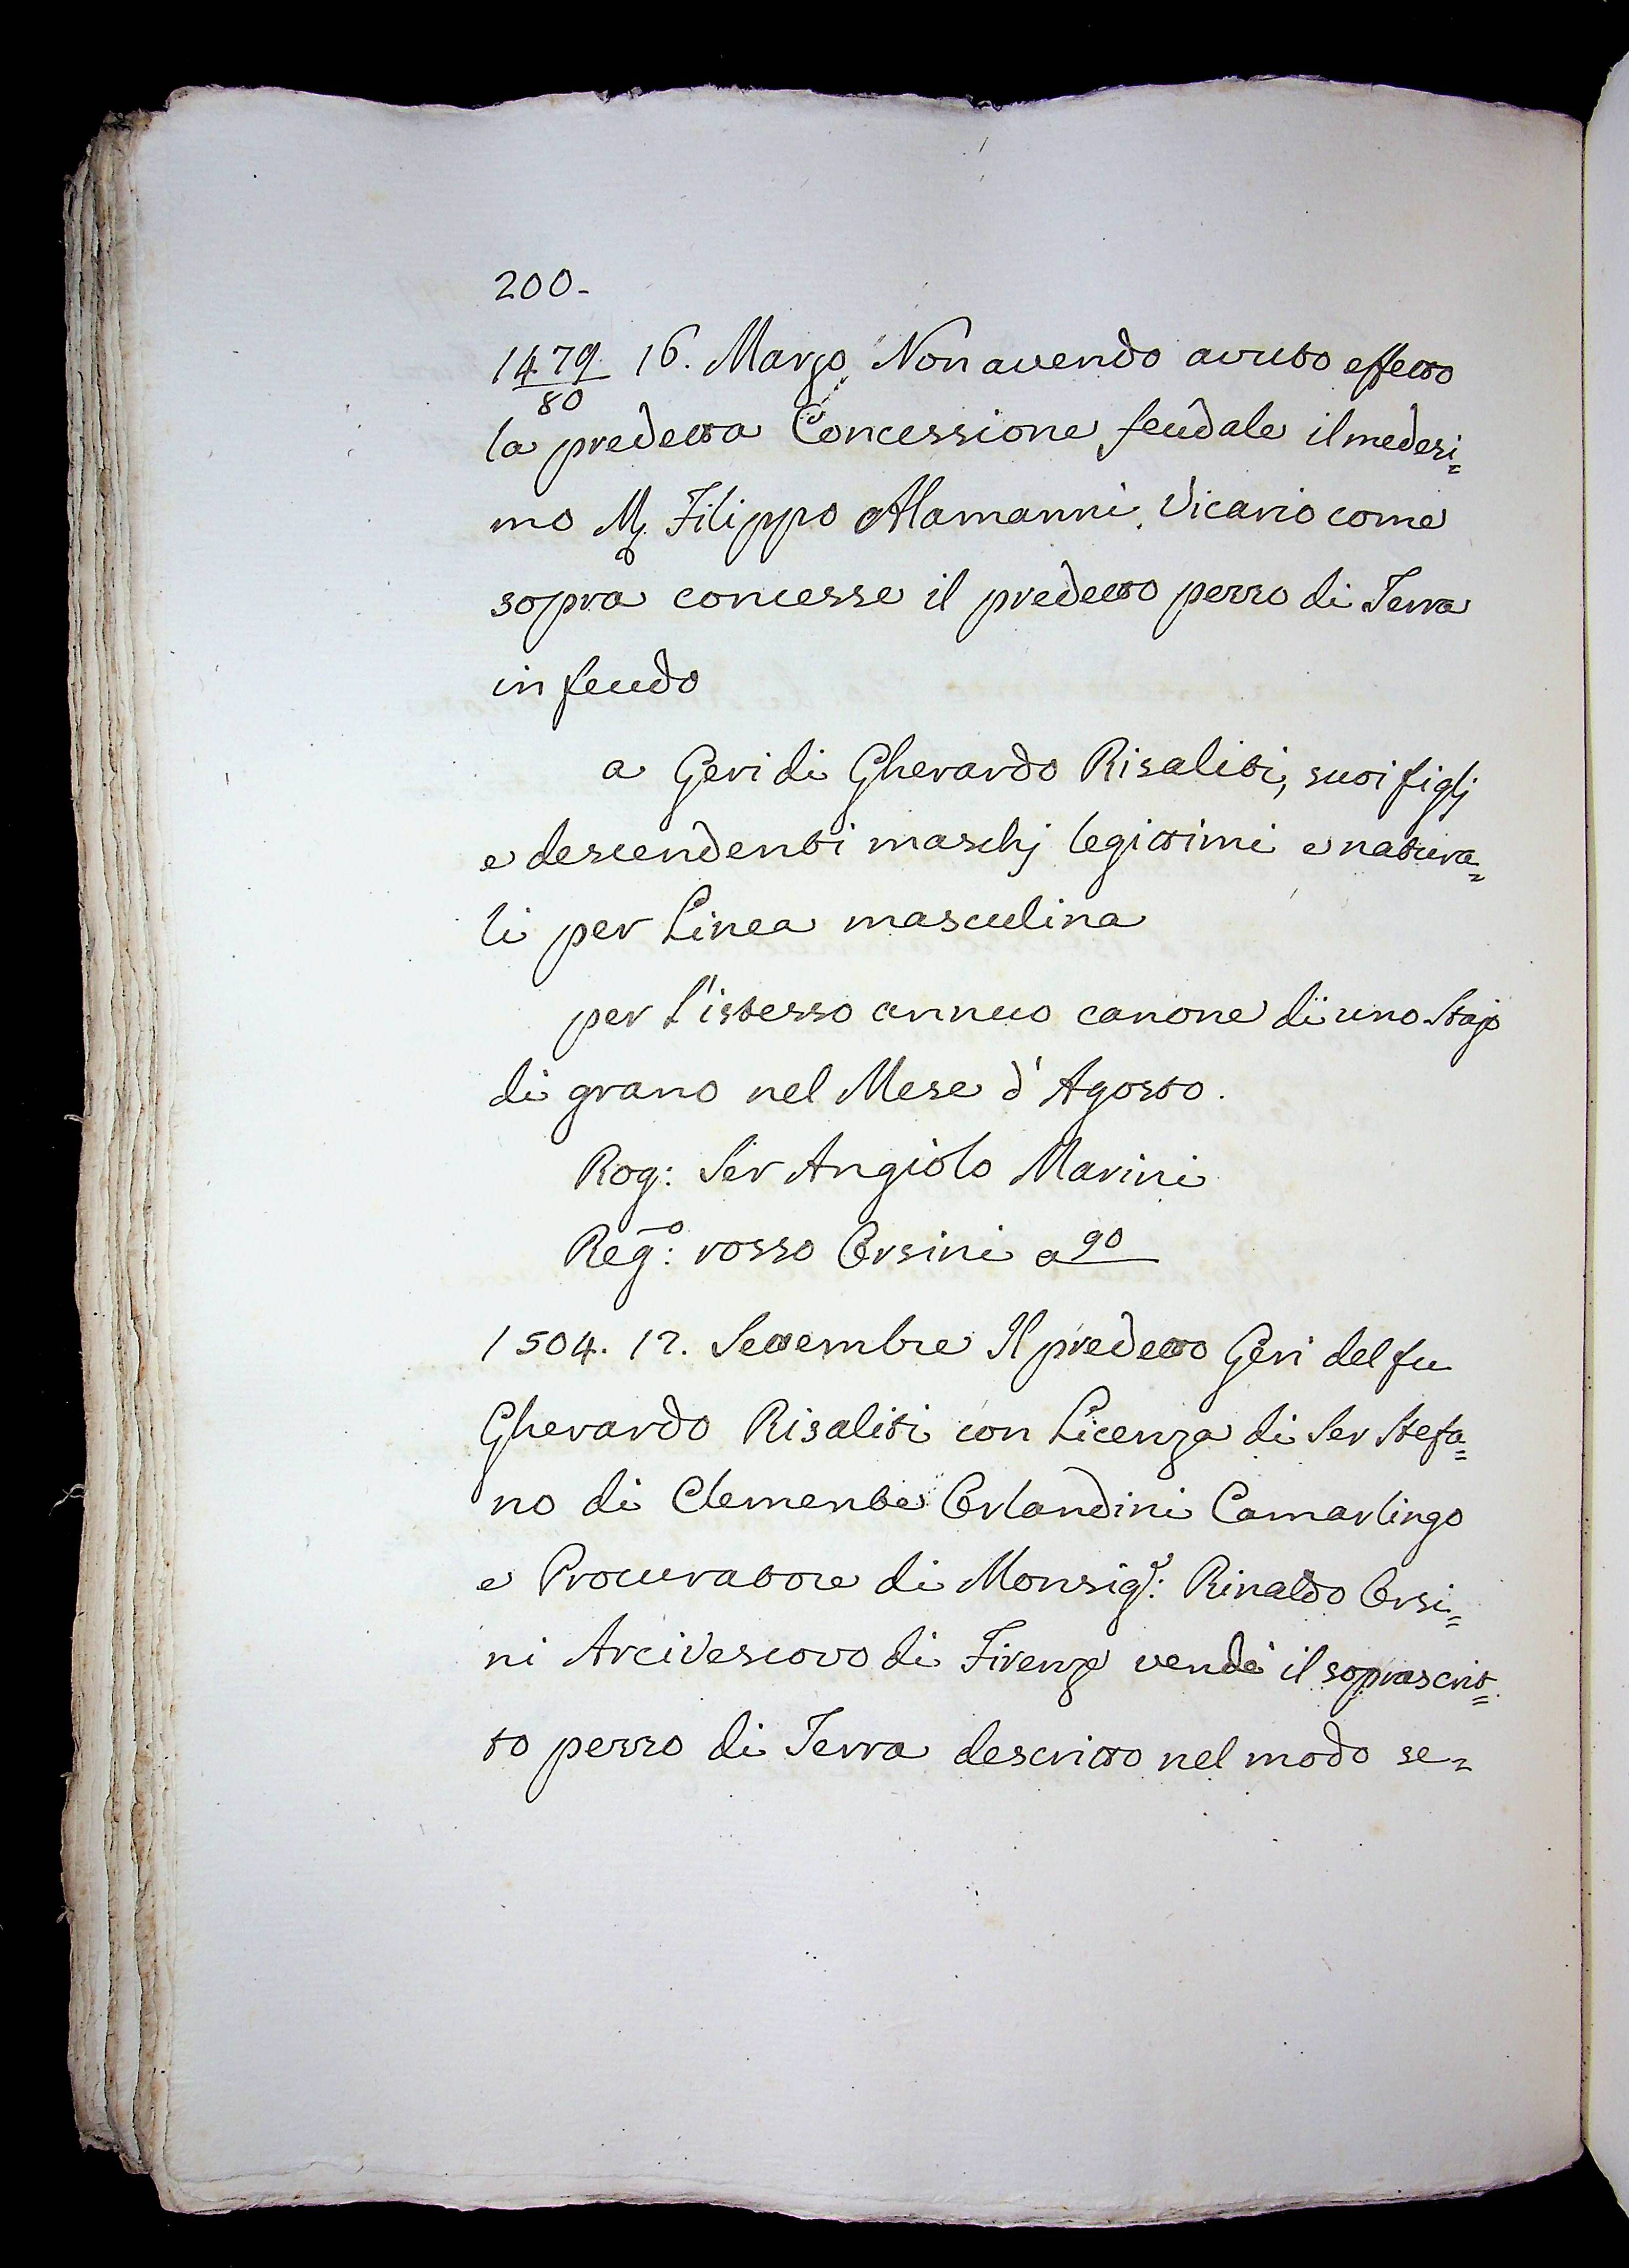 200-
1479/80 16. Marzo Non avendo avuto effetto
la predetta Concessione feudale il medesi=
mo Mg. Filippo Alamanni Vicario come
sopra concesse il predetto pezzo di Terra
in feudo
a Geri di Gherardo Risaliti, suoi figlj
e descendenti maschj legittimi e natura=
li per Linea masculina
per l'istesso annuo canone di uno Stajo
di grano nel Mese d'Agosto.
Rog: Ser Angiolo Marini
Reg:o rosso Orsini a 90
1504. 17. Settembre Il predetto Geri del fu
Gherardo Risaliti con Licenza di Ser Stefa=
no di Clemente Orlandini Camarlingo
e Procuratore di Monsig.r: Rinaldo Orsi=
ni Arcivescovo di Firenze vendè il soprascrit=
to pezzo di Terra descritto nel modo se=